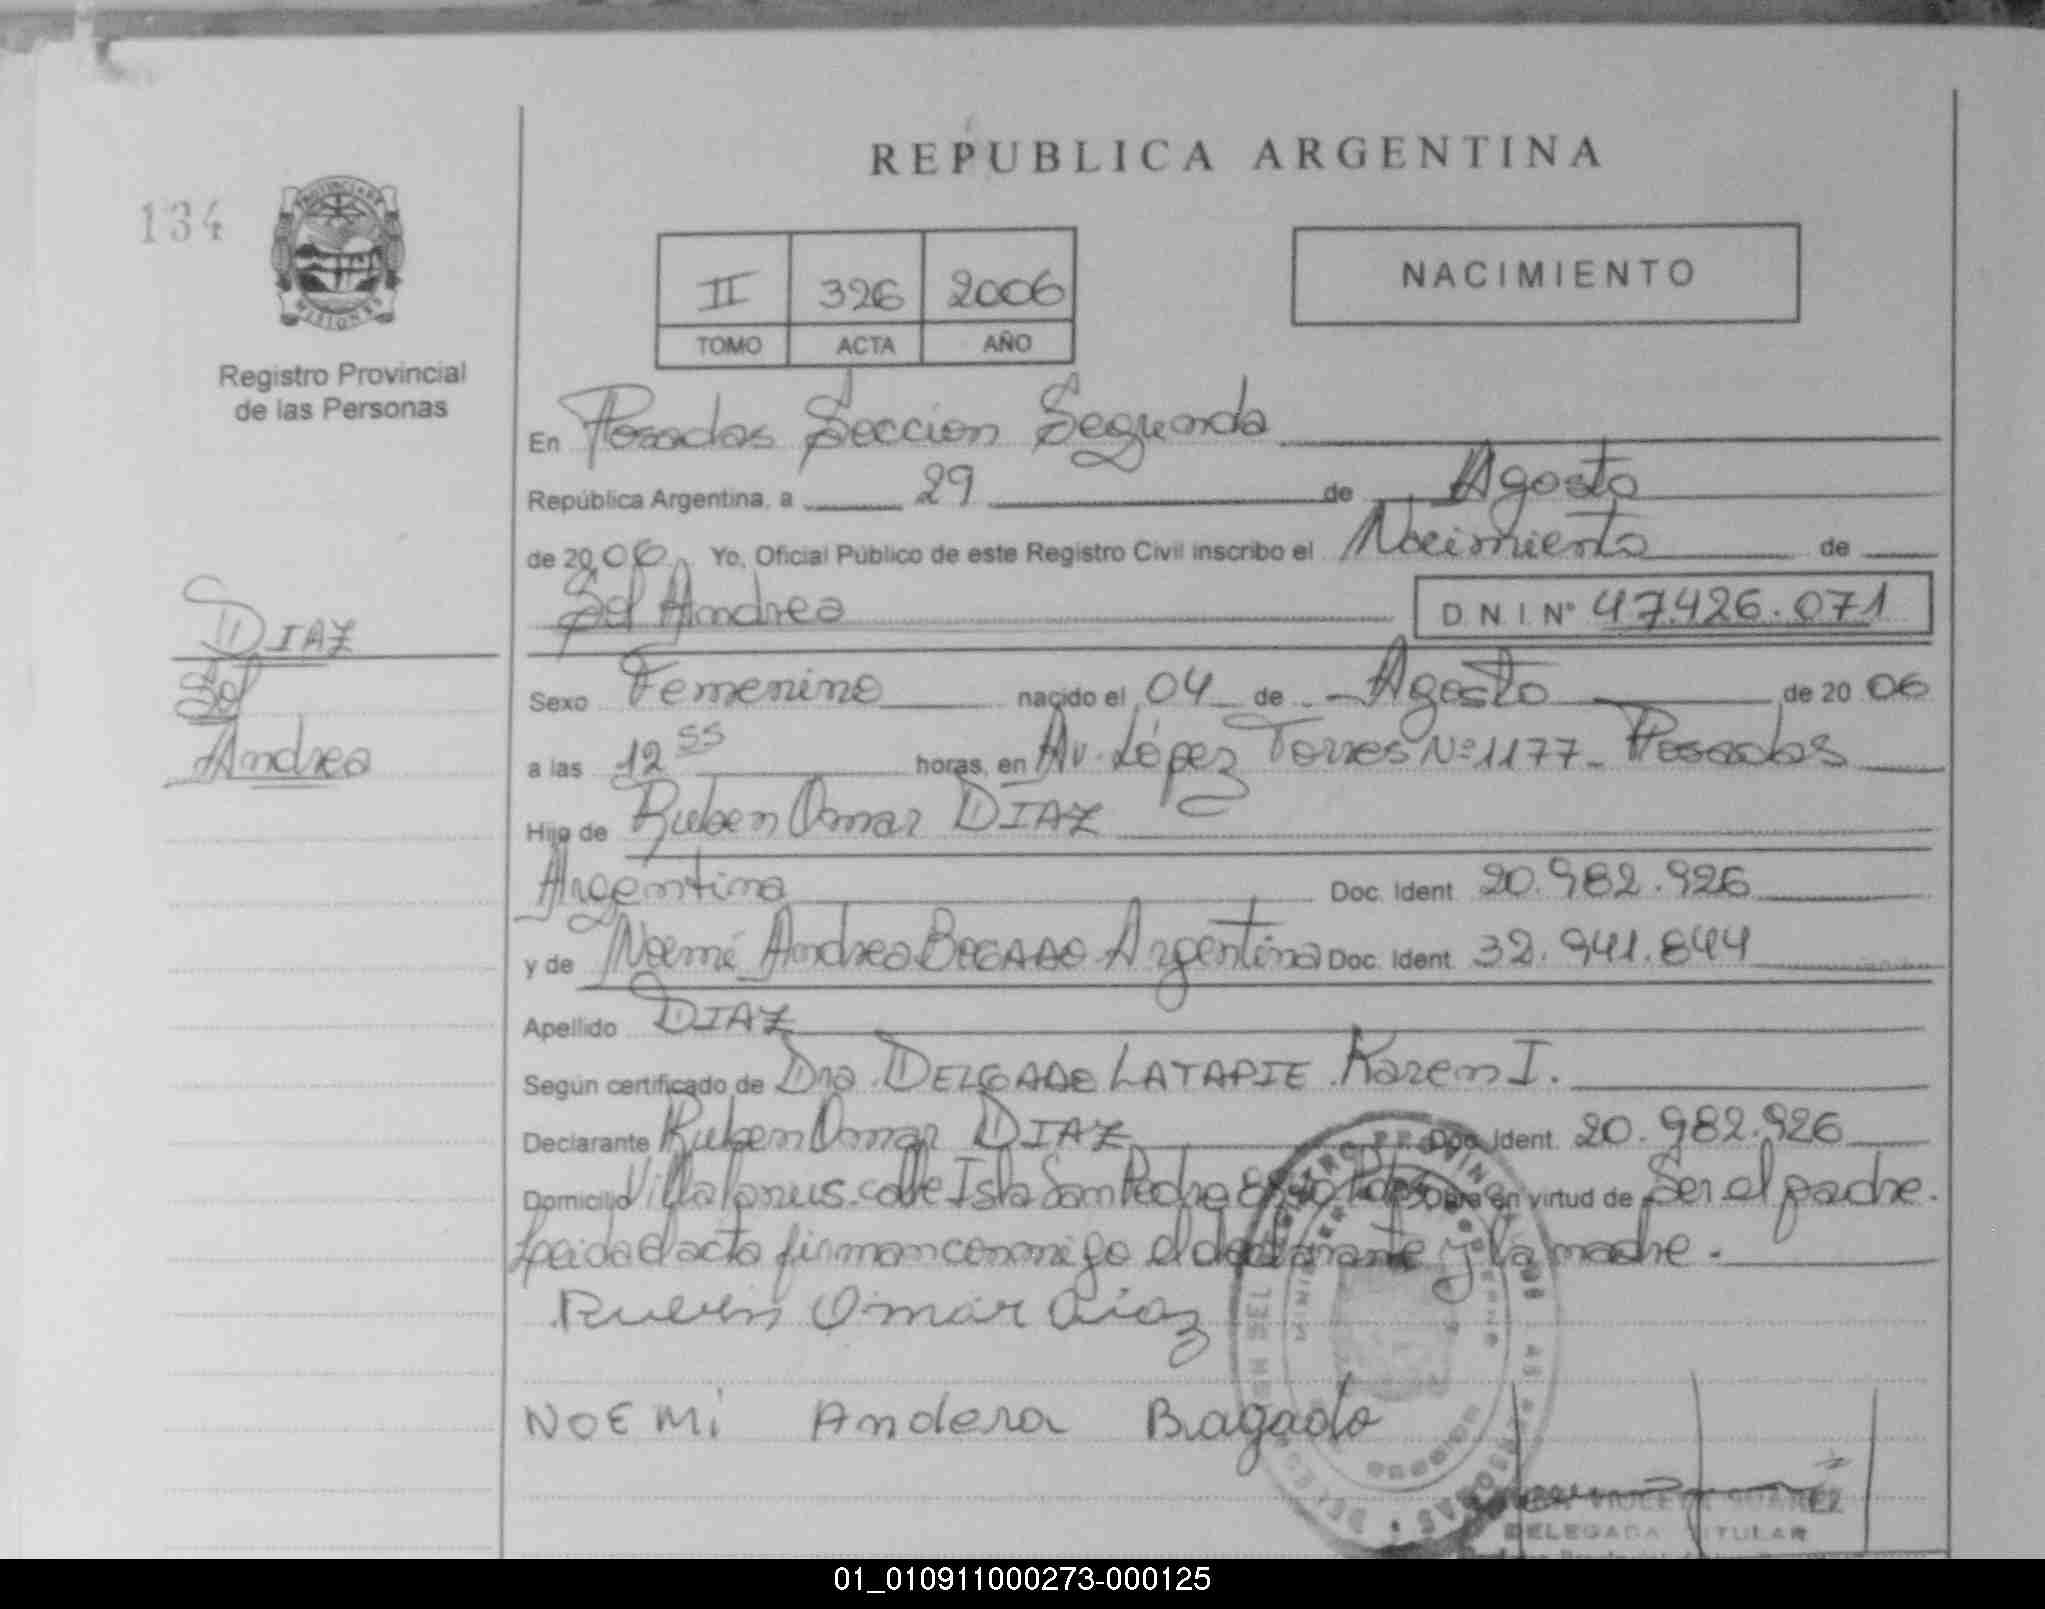 REPUBLICA ARGENTINA
134
PROVINCIA DE
MISIONES
Registro Provincial
de las Personas
II 326 2006
TOMO ACTA AÑO
NACIMIENTO
En Posadas Sección Segunda
República Argentina, a 29 de Agosto
de 2006. Yo, Oficial Público de este Registro Civil inscribo el Nacimiento de
Sol Andrea D N I Nº 47.426.071
DIAZ
Sol
Andrea
Sexo Femenino nacido el 04 de Agosto de 2006
a las 12 55 horas, en Av. López Torres Nº 1177 - Posadas
Hijo de Ruben Omar DIAZ
Argentina Doc. Ident. 20.982.926
y de Noemí Andrea BOGADO Argentina Doc. Ident. 32.941.844
Apellido DIAZ
Según certificado de Dra. DELGADO LATAPIE Karem I.
Declarante Ruben Omar DIAZ Doc. Ident. 20.982.926
Domicilio Villa Lanus calle Isla San Pedro Obra en virtud de Ser el padre.
Leida el acta firman conmigo el declarante y la madre.
Ruben Omar Diaz
NOEMi Andera Bagado
VIOLETA SUAREZ
DELEGADA TITULAR
01_010911000273-000125